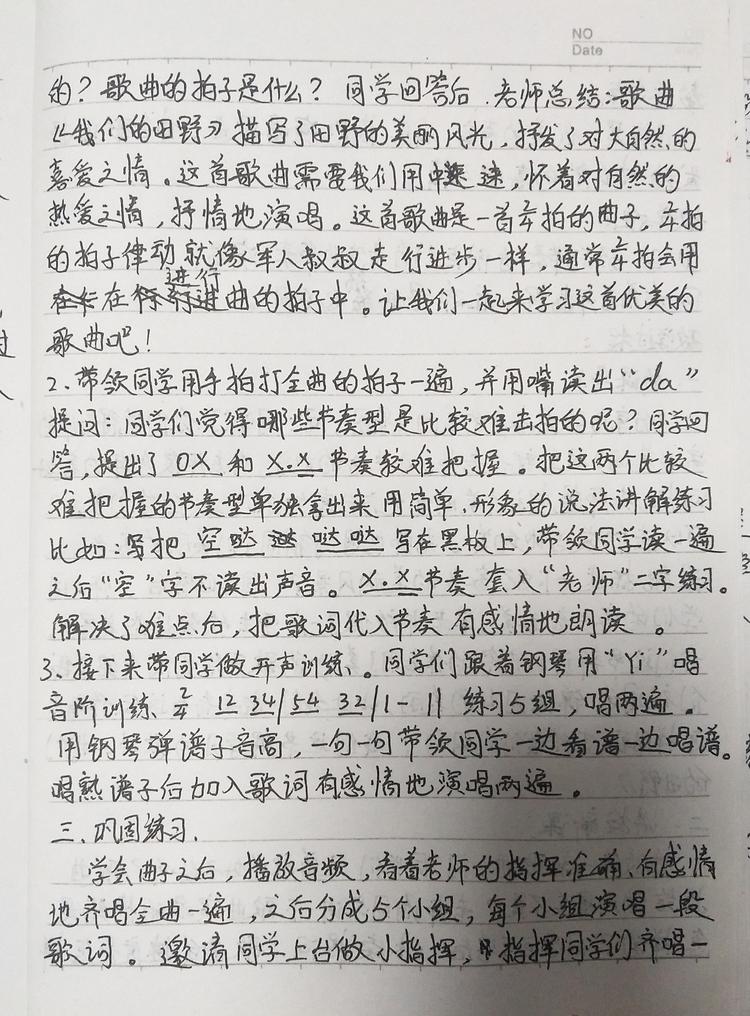 NO
Date
的？歌曲的拍子是什么？同学回答后，老师总结：歌曲
《我们的田野》描写了田野的美丽风光，抒发了对大自然的
喜爱之情。这首歌曲需要我们用中速，怀着对自然的
热爱之情，抒情地演唱。这首歌曲是一首2/4拍的曲子，2/4拍
的拍子律动就像军人叔叔走行进步一样，通常2/4拍会用
在进行曲的拍子中。让我们一起来学习这首优美的
歌曲吧！
2、带领同学用手拍打全曲的拍子一遍，并用嘴读出“da”
提问：同学们觉得哪些节奏型是比较难击拍的呢？同学回
答，提出了 0X 和 X.X 节奏较难把握。把这两个比较
难把握的节奏型单独拿出来用简单、形象的说法讲解练习
比如：写把 空哒 哒 哒哒 写在黑板上，带领同学读一遍
之后“空”字不读出声音。X.X节奏 套入“老师”二字练习。
解决了难点后，把歌词代入节奏 有感情地朗读。
3、接下来带同学做开声训练。同学们跟着钢琴用“Yi”唱
音阶训练、2/4 12 34|54 32|1-|| 练习5组，唱两遍。
用钢琴弹谱子音高，一句一句带领同学一边看谱一边唱谱。
唱熟谱子后加入歌词有感情地演唱两遍。
三、巩固练习.
学会曲子之后，播放音频，看着老师的指挥准确、有感情
地齐唱全曲一遍，之后分成5个小组，每个小组演唱一段
歌词。邀请同学上台做小指挥，指挥同学们齐唱一